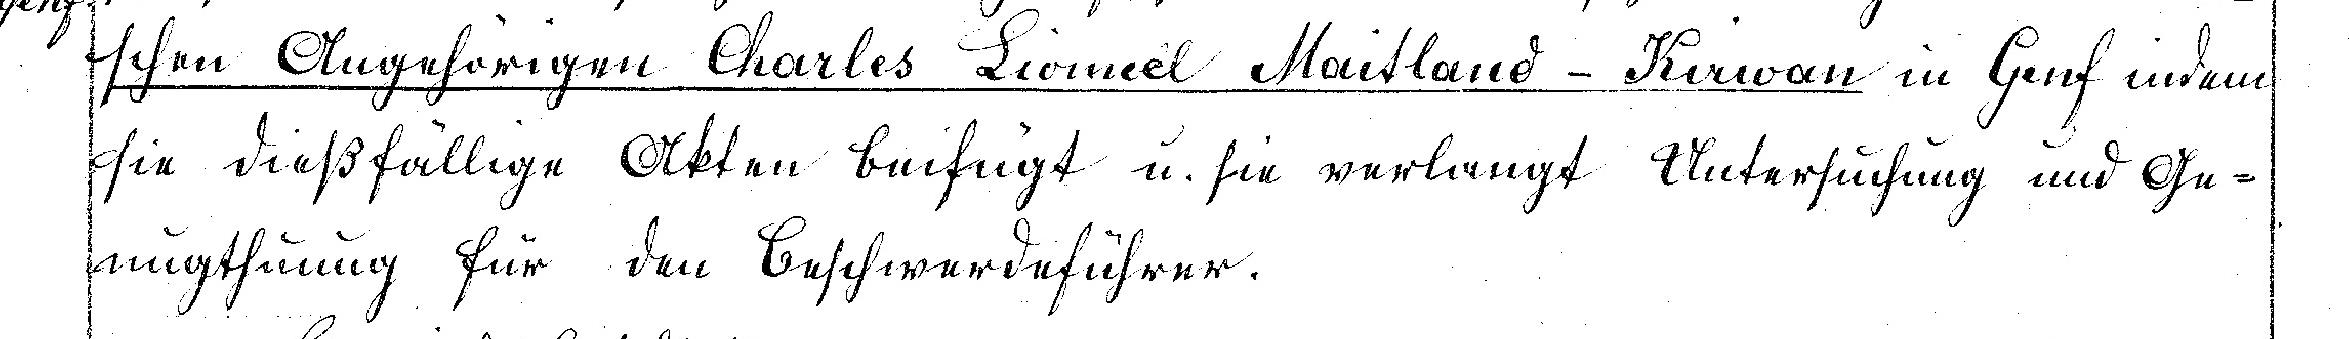 schen Angehörigen Charles Lionnel Maitland - Kirwan in Genf indem
sie dießfällige Akten beifügt u. sie verlangt Untersuchung und Ge-
nugthuung für den Beschwerdeführer.